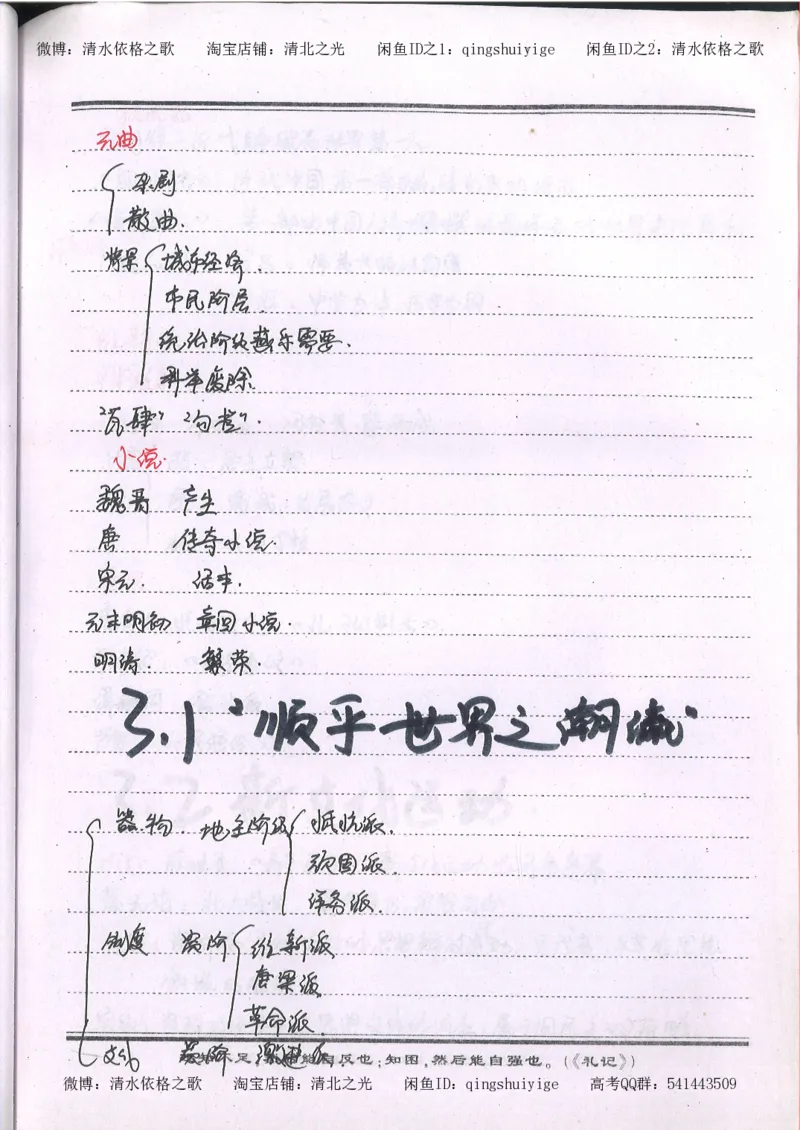 微博：清水依格之歌 淘宝店铺：清北之光 闲鱼ID之1：qingshuiyige 闲鱼ID之2：清水依格之歌
元曲
杂剧
散曲.
背景 城市经济.
市民阶层.
统治阶级娱乐需要.
科举废除.
"瓦肆" "勾栏".
小说
魏晋 产生
唐 传奇小说.
宋元. 话本.
元末明初 章回小说.
明清. 繁荣.
3.1 "顺乎世界之潮流"
器物 地主阶级 抵抗派.
顽固派.
洋务派.
制度 资阶 维新派
康梁派
革命派.
文化 资阶 激进派
足，能自反也；知困，然后能自强也。(《礼记》)
微博：清水依格之歌 淘宝店铺：清北之光 闲鱼ID：qingshuiyige 高考QQ群：541443509